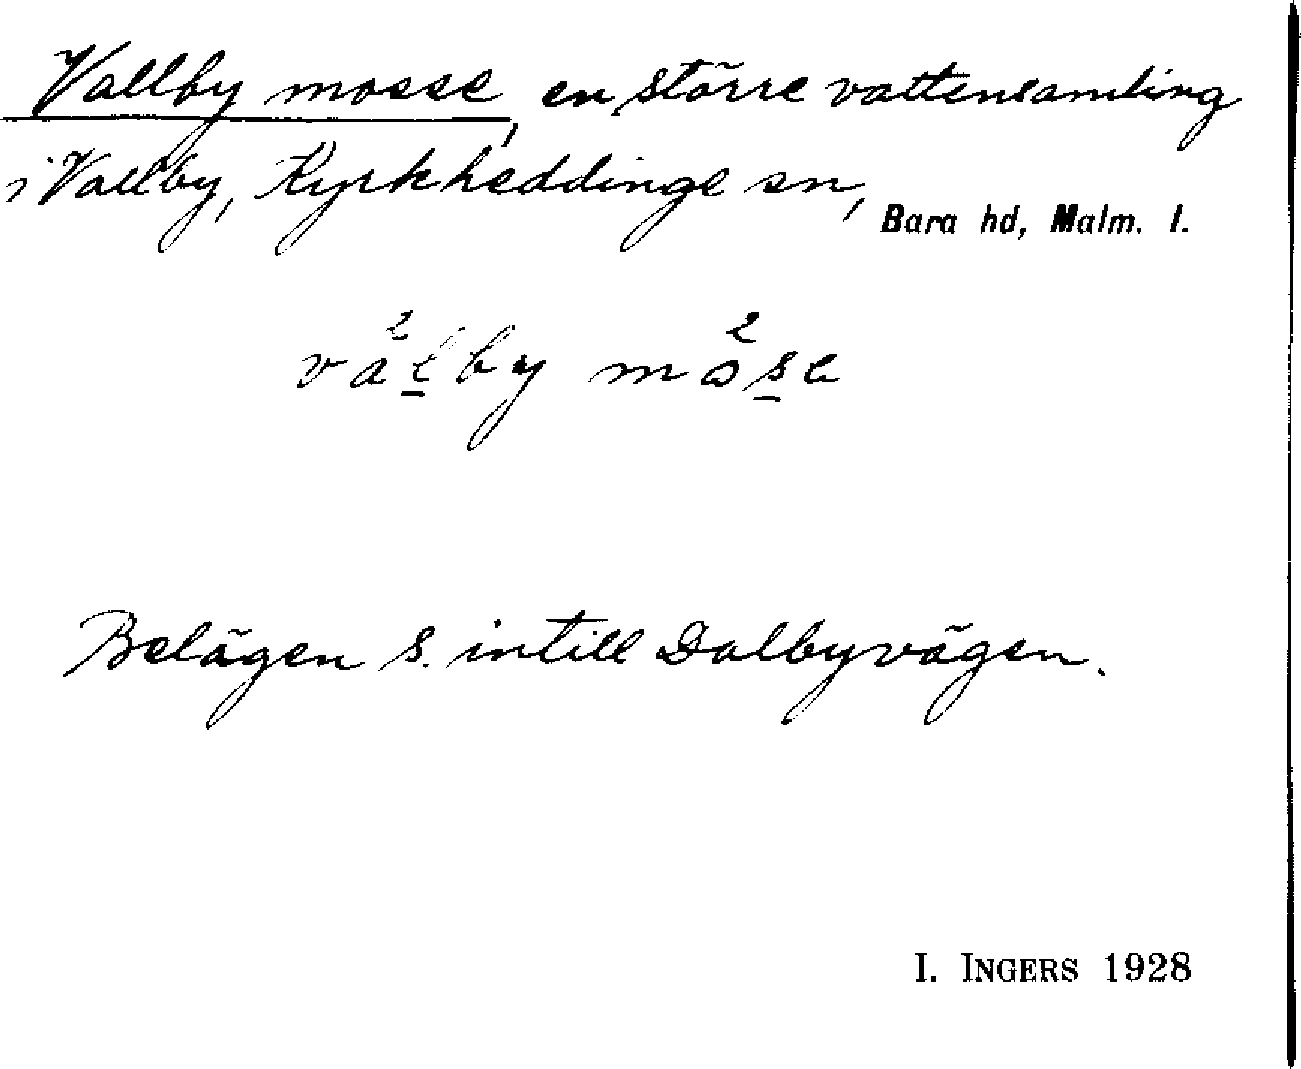 Vallby mosse, en större vattensamling
i Vallby, Kyrkheddinge sn, Bara hd, Malm. l.
va²l̲by må²s̲e
Belägen S. intill Dalbyvägen.
I. INGERS 1928